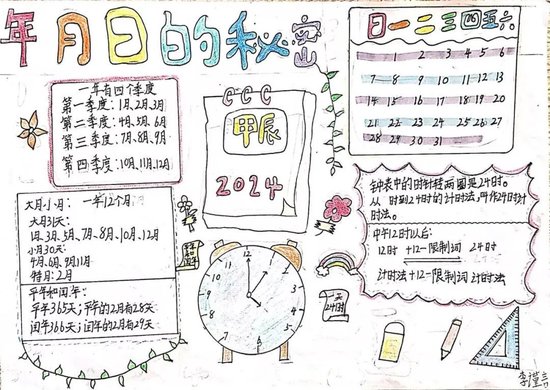 年月日的秘密
一年有四个季度
第一季度：1月、2月、3月
第二季度：4月、5月、6月
第三季度：7月、8月、9月
第四季度：10月、11月、12月
大月小月： 一年12个月
大月31天：
1月、3月、5月、7月、8月、10月、12月
小月30天：
4月、6月、9月11月
特月：2月
平年和闰年：
平年365天；平年的2月有28天
闰年366天；闰年的2月有29天
CCC
甲辰
2024
日一二三四五六
1 2 3 4 5 6
7 8 9 10 11 12 13
14 15 16 17 18 19 20
21 22 23 24 25 26 27
28 29 30 31
钟表中的时针转两圈是24时。
从 时到24时的计时法，叫作24时计
时法。
中午12时以后：
12时 +12-限制词 24时
计时法+12-限制词 计时法
12 1 2 3 4 5 6 7 8 9 10 11
一天
24时